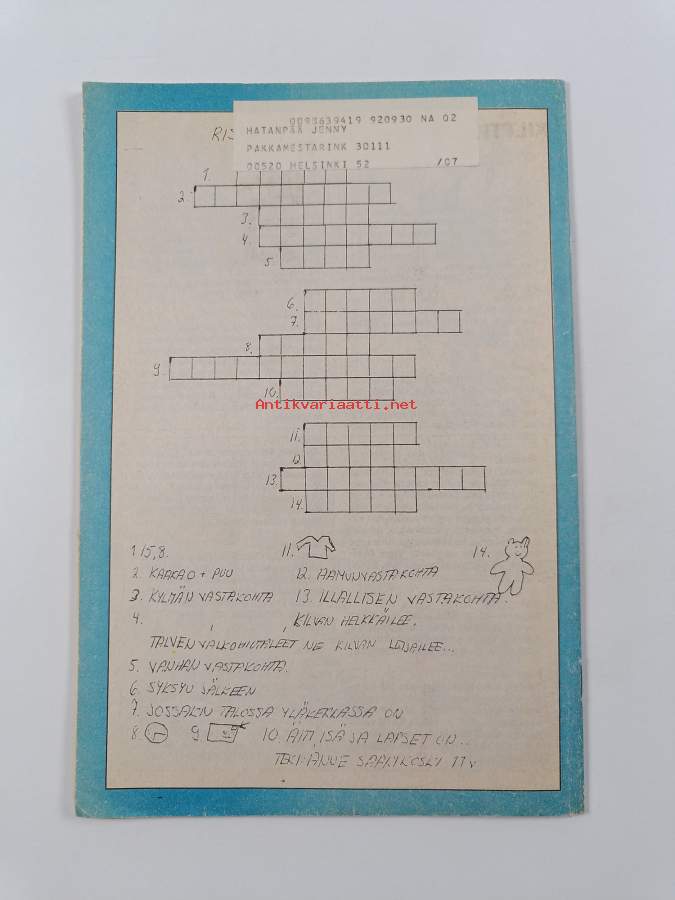 0098639419 920930 NA 02
HATANPÄÄ JENNY
PAKKAMESTARINK 30111
00520 HELSINKI 52 /07
RIS
1.
2.
3.
4.
5.
6.
7.
8.
9.
10.
Antikvariaatti.net
11.
12.
13.
14.
1. 15,8. 11. 14.
2. KAAKAO + PUU 12. AAMUN VASTAKOHTA
3. KYLMÄN VASTAKOHTA 13. ILLALLISEN VASTAKOHTA.
4. , , KILVAN HELKKÄILEE.
TALVEN VALKOHIUTALEET NE KILVAN LEIJAILEE...
5. VANHAN VASTAKOHTA.
6. SYKSYN JÄLKEEN
7. JOSSAKIN TALOSSA YLÄKERRASSA ON
8. 9. 10. ÄITI ISÄ JA LAPSET ON..
TEKI: ANNE 11 v